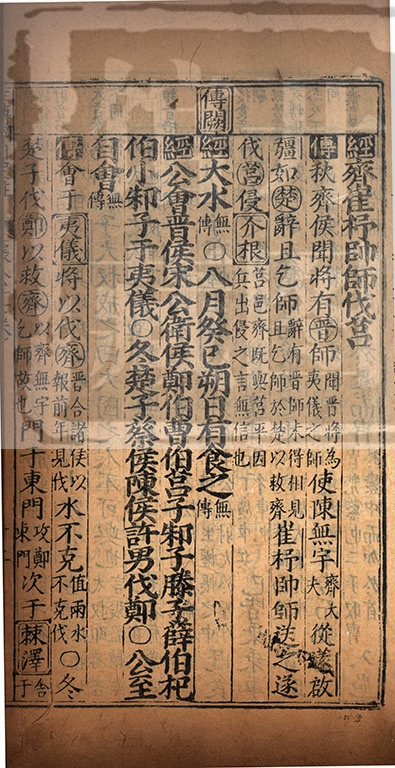 傳關
經齊崔杼帥師伐莒
傳秋齊侯聞將有晉師聞晉將為夷儀之師使陳無宇齊大夫從薳啟
彊如楚辭且乞師辭有晉師未得相見且乞師於楚以救齊崔杼帥師送之遂
伐莒侵介根莒邑齊既與莒平因兵出侵之言無信也
經大水無傳○八月癸巳朔日有食之無傳
經公會晉侯宋公衛侯鄭伯曹伯莒子邾子滕子薛伯杞
伯小邾子于夷儀○冬楚子蔡侯陳侯許男伐鄭○公至
自會無傳
傳會于夷儀將以伐齊晉合諸侯以報前年見伐水不克值雨水不克伐○冬
楚子伐鄭以救齊以齊無宇乞師故也門于東門攻鄭東門次于棘澤舍于